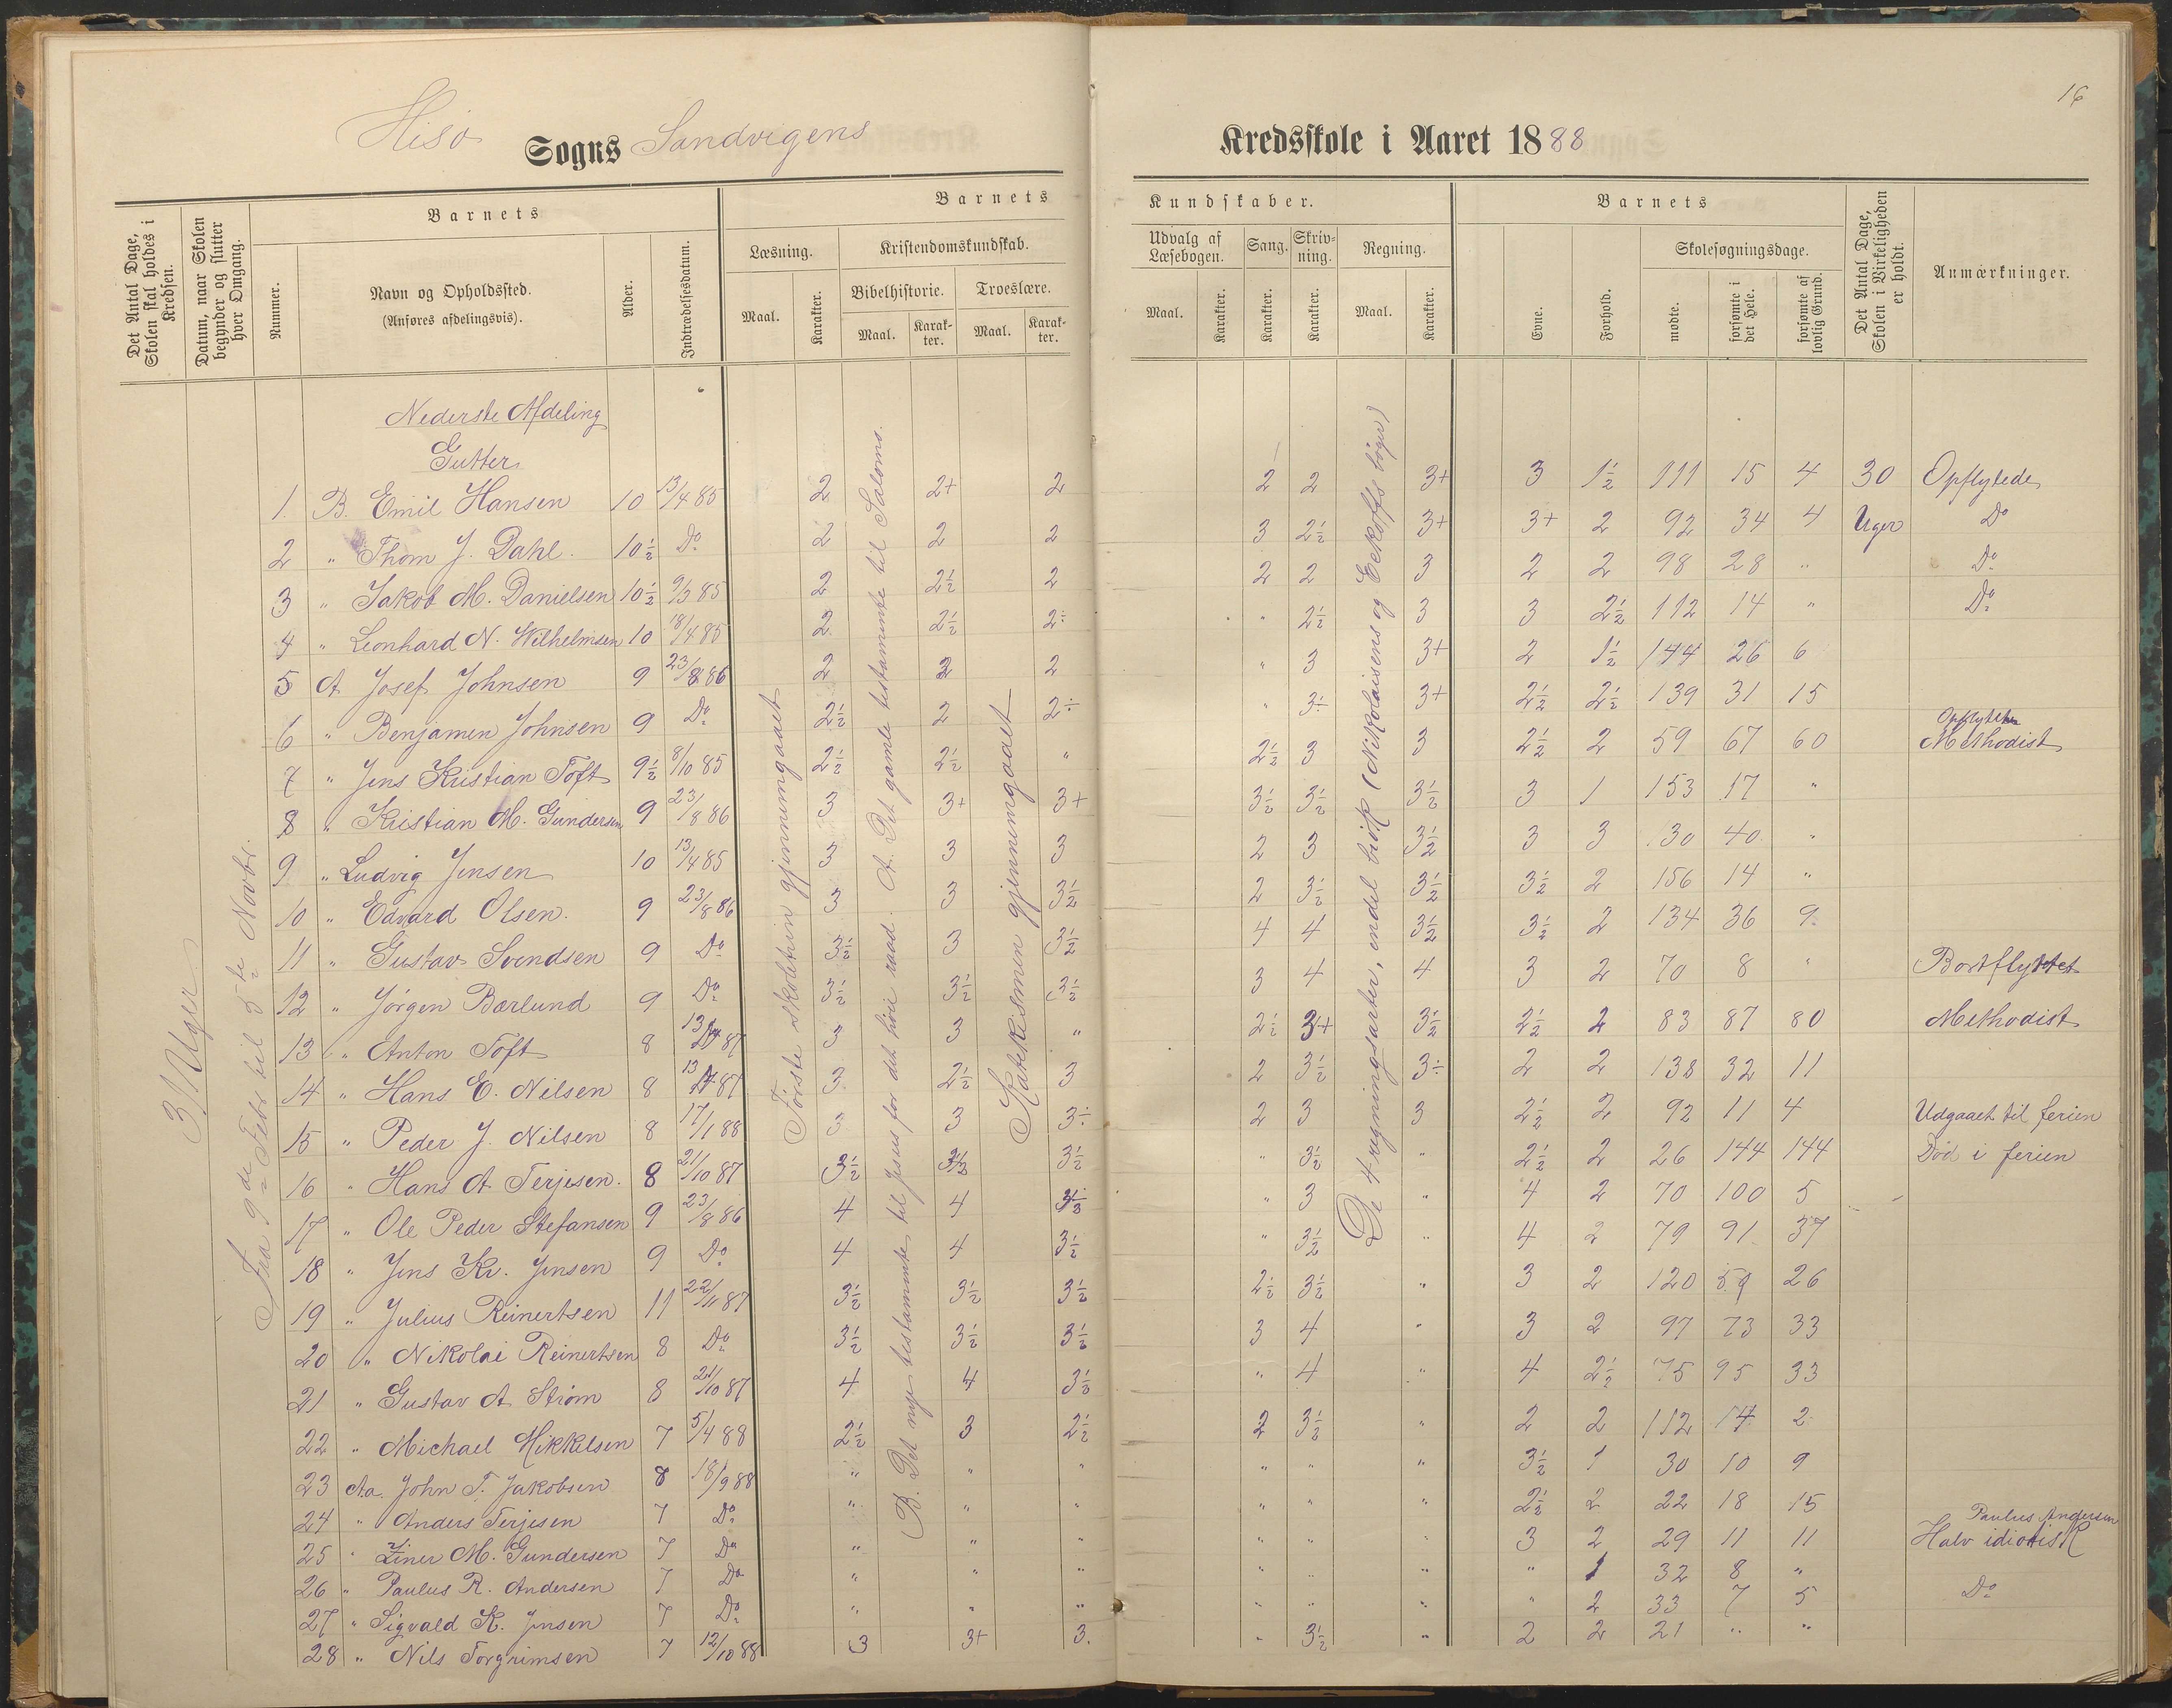 16
Hisø Sogns Sandvigens Kredsskole i Aaret 1888
Det Antal Dage, Skolen skal holdes i Kredsen.
Datum, naar Skolen begynder og slutter hver Omgang.
Barnets
Nummer.
Navn og Opholdssted.
(Anføres afdelingsvis).
Alder.
Indtrædelsesdatum.
Barnets Kundskaber.
Læsning.
Maal.
Karakter.
Kristendomskundskab.
Bibelhistorie.
Maal.
Karakter.
Troeslære.
Maal.
Karakter.
Udvalg af Læsebogen.
Maal.
Karakter.
Sang.
Karakter.
Skrivning.
Karakter.
Regning.
Maal.
Karakter.
Barnets
Evne.
Forhold.
Skolesøgningsdage.
mødte.
forsømte i det Hele.
forsømte af lovlig Grund.
Det Antal Dage, Skolen i Virkeligheden er holdt.
Anmærkninger.
31 Uger
Fra 9de Febr til 5te Novbr.
Første skoletrin gjennemgaaet
B. Det nye testamente til Jesus for det høie raad. A. Det gamle testamente til Salomo.
Katekismen gjennemgaaet
De 4 regningsarter, endel brøk (Nikolaisens og Eekoffs bøger)
Nederste Afdeling
Gutter
1. B. Emil Hansen 10 13/4 85 2 2+ 2 2 2 3+ 3 1½ 111 15 4 30 Opflytede
2 " Thom J. Dahl. 10½ Do 2 2 2 3 2½ 3+ 3+ 2 92 34 4 Uger Do
3 " Jakob M. Danielsen 10½ 9/3 85 2 2½ 2 2 2 3 2 2 98 28 " Do
4 " Leonhard N. Wilhelmsen 10 18/4 85 2 2½ 2÷ " 2½ 3 3 2½ 112 14 " Do
5 A Josef Johnsen 9 23/8 86 2 2 2 " 3 3+ 2 1½ 144 26 6
6 " Benjamen Johnsen 9 Do 2½ 2 2÷ " 3÷ 3+ 2½ 2½ 139 31 15
7 " Jens Kristian Toft 9½ 8/10 85 2½ 2½ " 2½ 3 3 2½ 2 59 67 60 Opflyttet Methodist
8 " Kristian M. Gundersen 9 23/8 86 3 3+ 3+ 3½ 3½ 3½ 3 1 153 17 "
9 " Ludvig Jensen 10 13/4 85 3 3 3 2 3 3½ 3 3 130 40 "
10 " Edvard Olsen. 9 23/8 86 3 3 3½ 2 3½ 3½ 3½ 2 156 14 "
11 " Gustav Svendsen 9 Do 3½ 3 3½ 4 4 3½ 3½ 2 134 36 9
12 " Jörgen Bærlund 9 Do 3½ 3½ 3½ 3 4 4 3 2 70 8 " Bortflyttet
13 " Anton Toft 8 87 3 3 " 2½ 3+ 3½ 2½ 2 83 87 80 Methodist
14 " Hans E. Nilsen 8 87 3 2½ 3 2 3½ 3÷ 2 2 138 32 11
15 " Peder J. Nilsen 8 17/1 88 3 3 3÷ 2 3 3 2½ 2 92 11 4 Udgaaet til ferien
16 " Hans A Terjesen. 8 21/10 87 3½ 3½ 3½ " 3½ " 2½ 2 26 144 144 Död i ferien
17 " Ole Peder Stefansen 9 23/8 86 4 4 " 3 " 4 2 70 100 5
18 " Jens Kr. Jensen 9 Do 4 4 3½ " 3½ " 4 2 79 91 37
19 " Julius Reinertsen 11 22/11 87 3½ 3½ 3½ 2½ 3½ " 3 2 120 59 26
20 " Nikolai Reinertsen 8 Do 3½ 3½ 3½ 3 4 " 3 2 97 73 33
21 " Gustav A Strøm 8 21/10 87 4 4 3½ " 4 " 4 2½ 75 95 33
22 " Michael Mikkelsen 7 5/4 88 2½ 3 2½ 2 3½ " 2 2 112 14 2
23 Aa. John T. Jakobsen 8 18/9 88 " " " " " " 3½ 1 30 10 9
24 " Anders Terjesen 7 Do " " " " " " 2½ 2 22 18 15
25 " Einer M. Gundersen 7 Do " " " " " " 3 2 29 11 11 Paulus Andersen Halv idiotisk
26 " Paulus R. Andersen 7 Do " " " " " " " 1 32 8 "
27 " Sigvald K. Jensen 7 Do " " " " " " " 2 33 7 5 Do
28 " Nils Torgrimsen 7 12/10 88 3 3+ 3. " 3½ " 2 2 21 " "